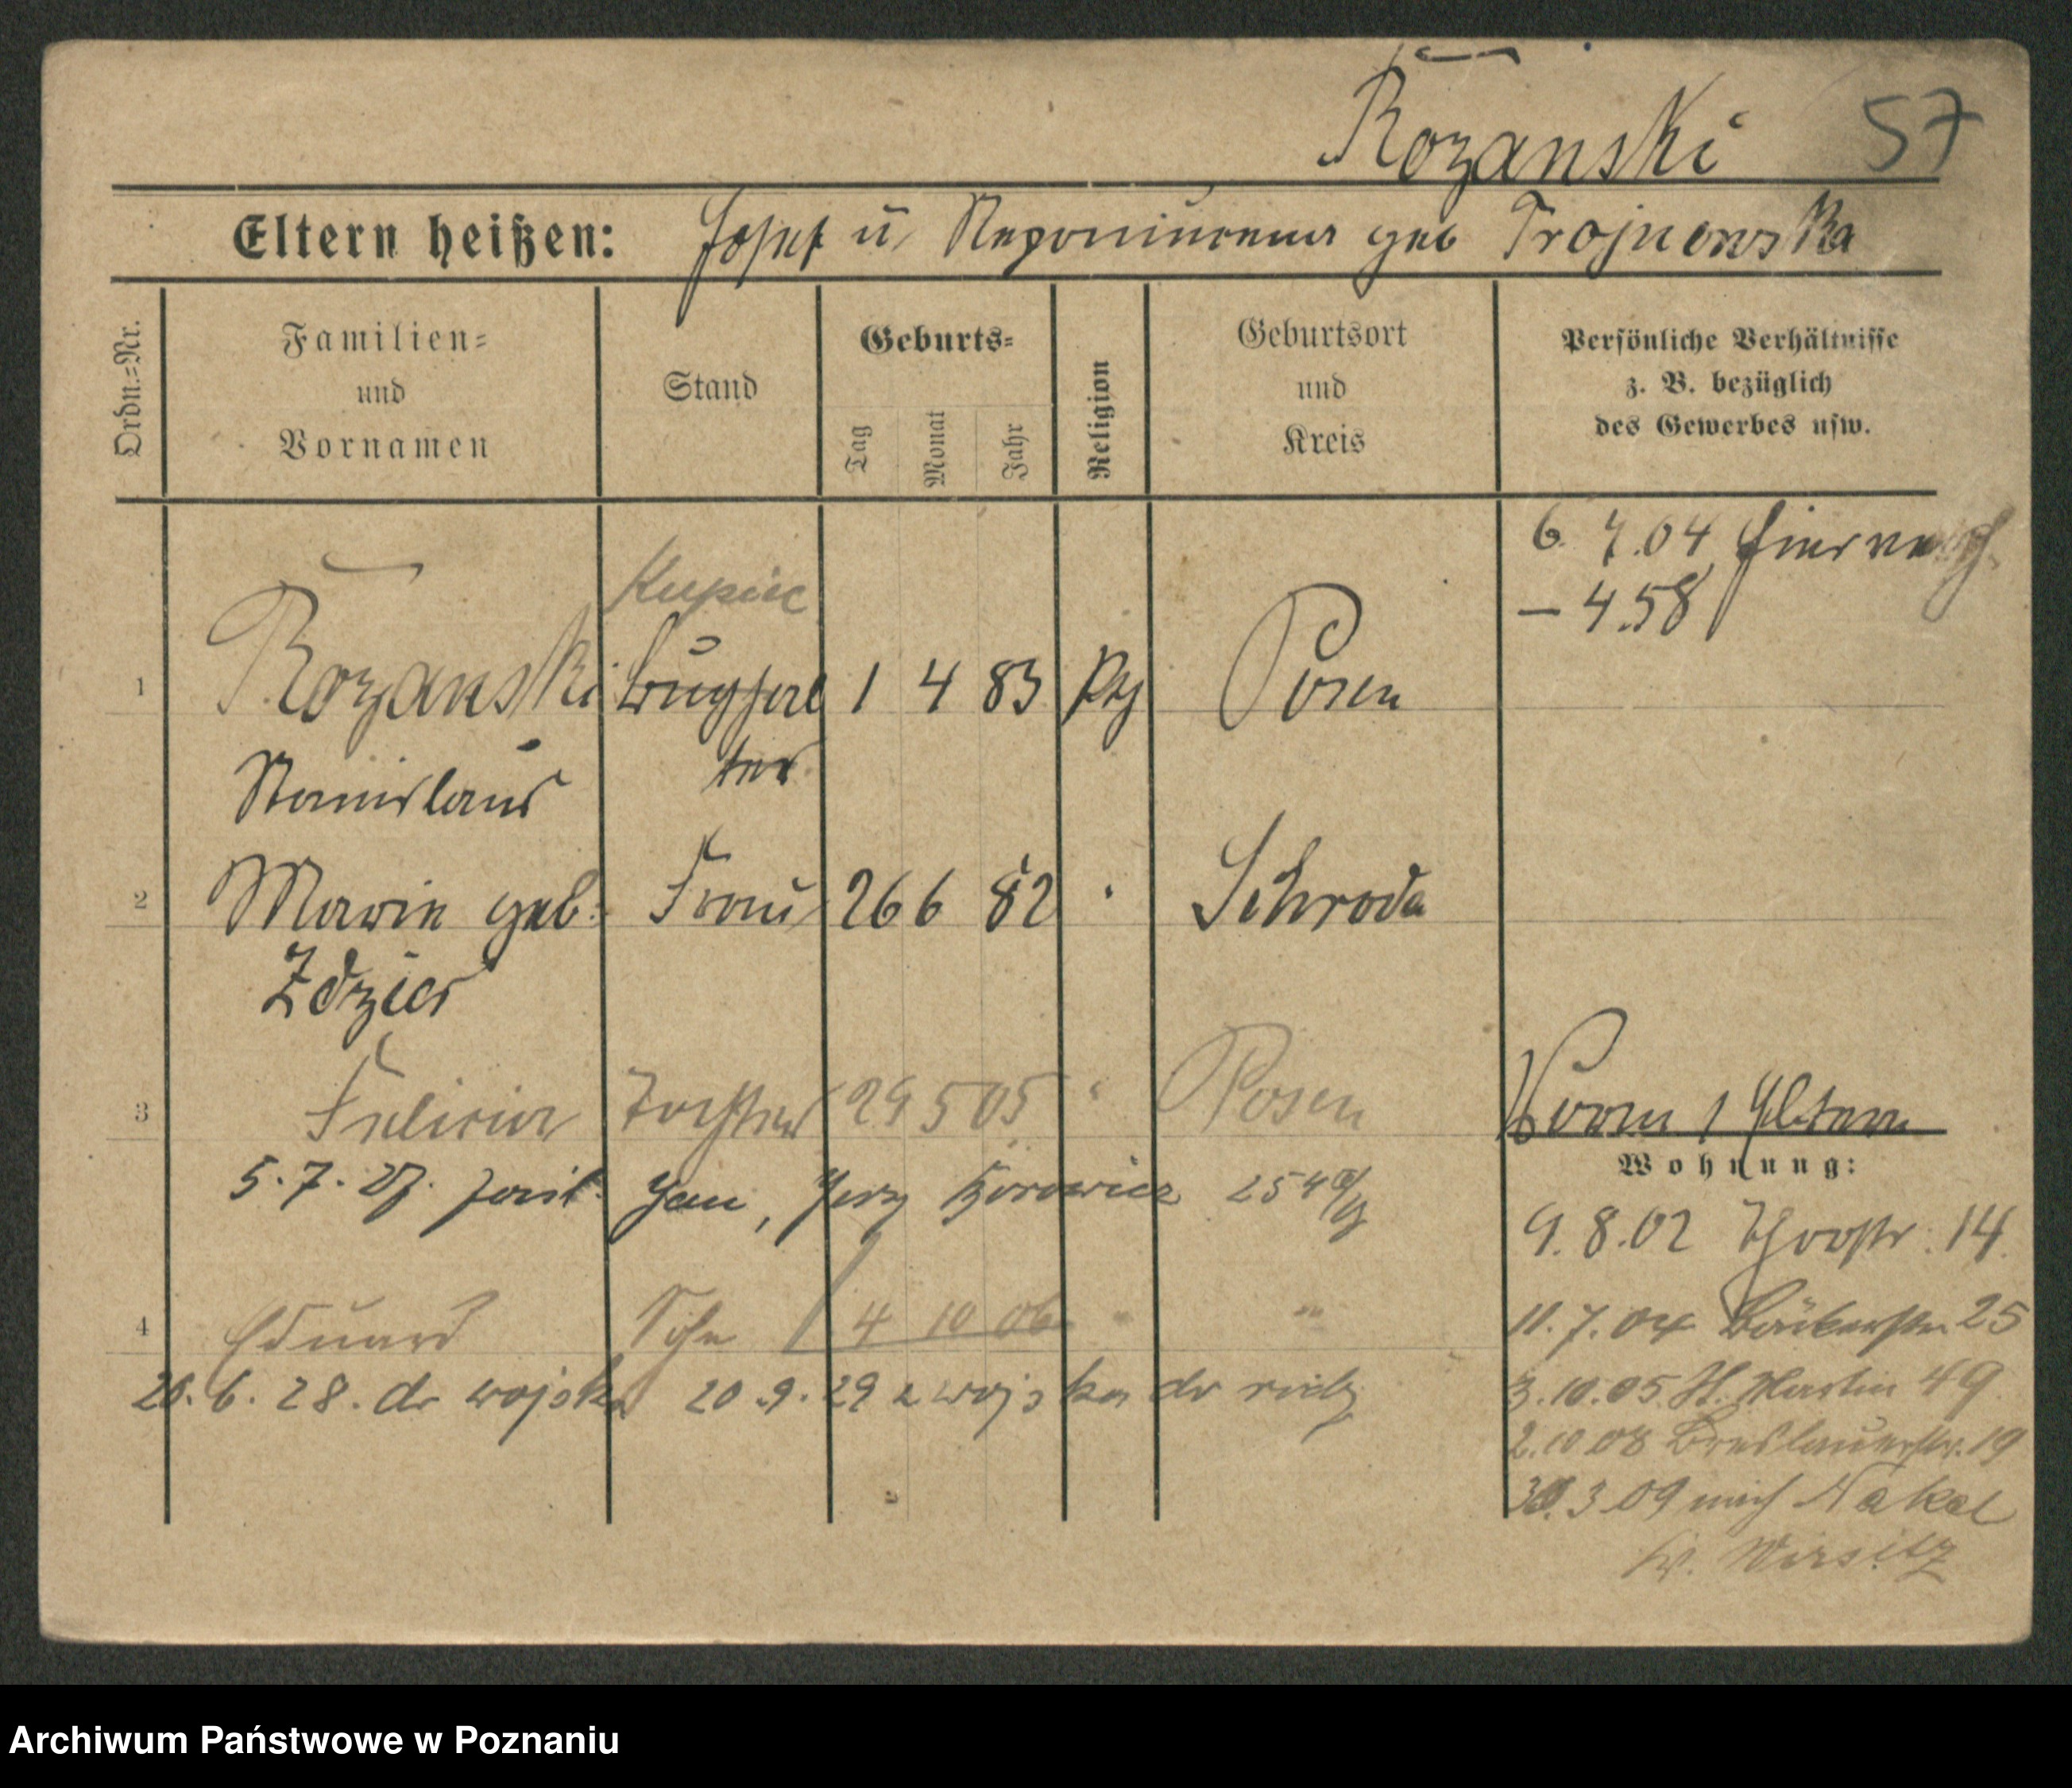 Rozanski 57
Eltern heißen: Josef u Nepomucena geb Trojnowska
Ordn.=Nr.
Familien=
und
Vornamen
Stand
Geburts=
Tag
Monat
Jahr
Religion
Geburtsort
und
Kreis
Persönliche Verhältnisse
z. B. bezüglich
des Gewerbes usw.
6. 7.04
– 4.58
Kupiec
1 Rozanski 1 4 83 Posen
ter
Stanislaus
2 Marie geb. Frau 26 6 82 Schroda
Zdzier
3 Felicia Tochter 29 5 05 " Posen
Vorm 1 Eltern
5. 7. 27. Jan, Jerzy 254
Wohnung:
9. 8. 02 Thorstr. 14
4 Eduard Sohn 4 10 06 " "
11. 7. 04 Bäckerstr 25
20. 6. 28. do wojska 20. 9. 29 z wojska do
3. 10. 05. St. Martin 49
2. 10 08 Breslauerstr. 19
30. 3 09 nach Nakel
Kr. Wirsitz
Archiwum Państwowe w Poznaniu